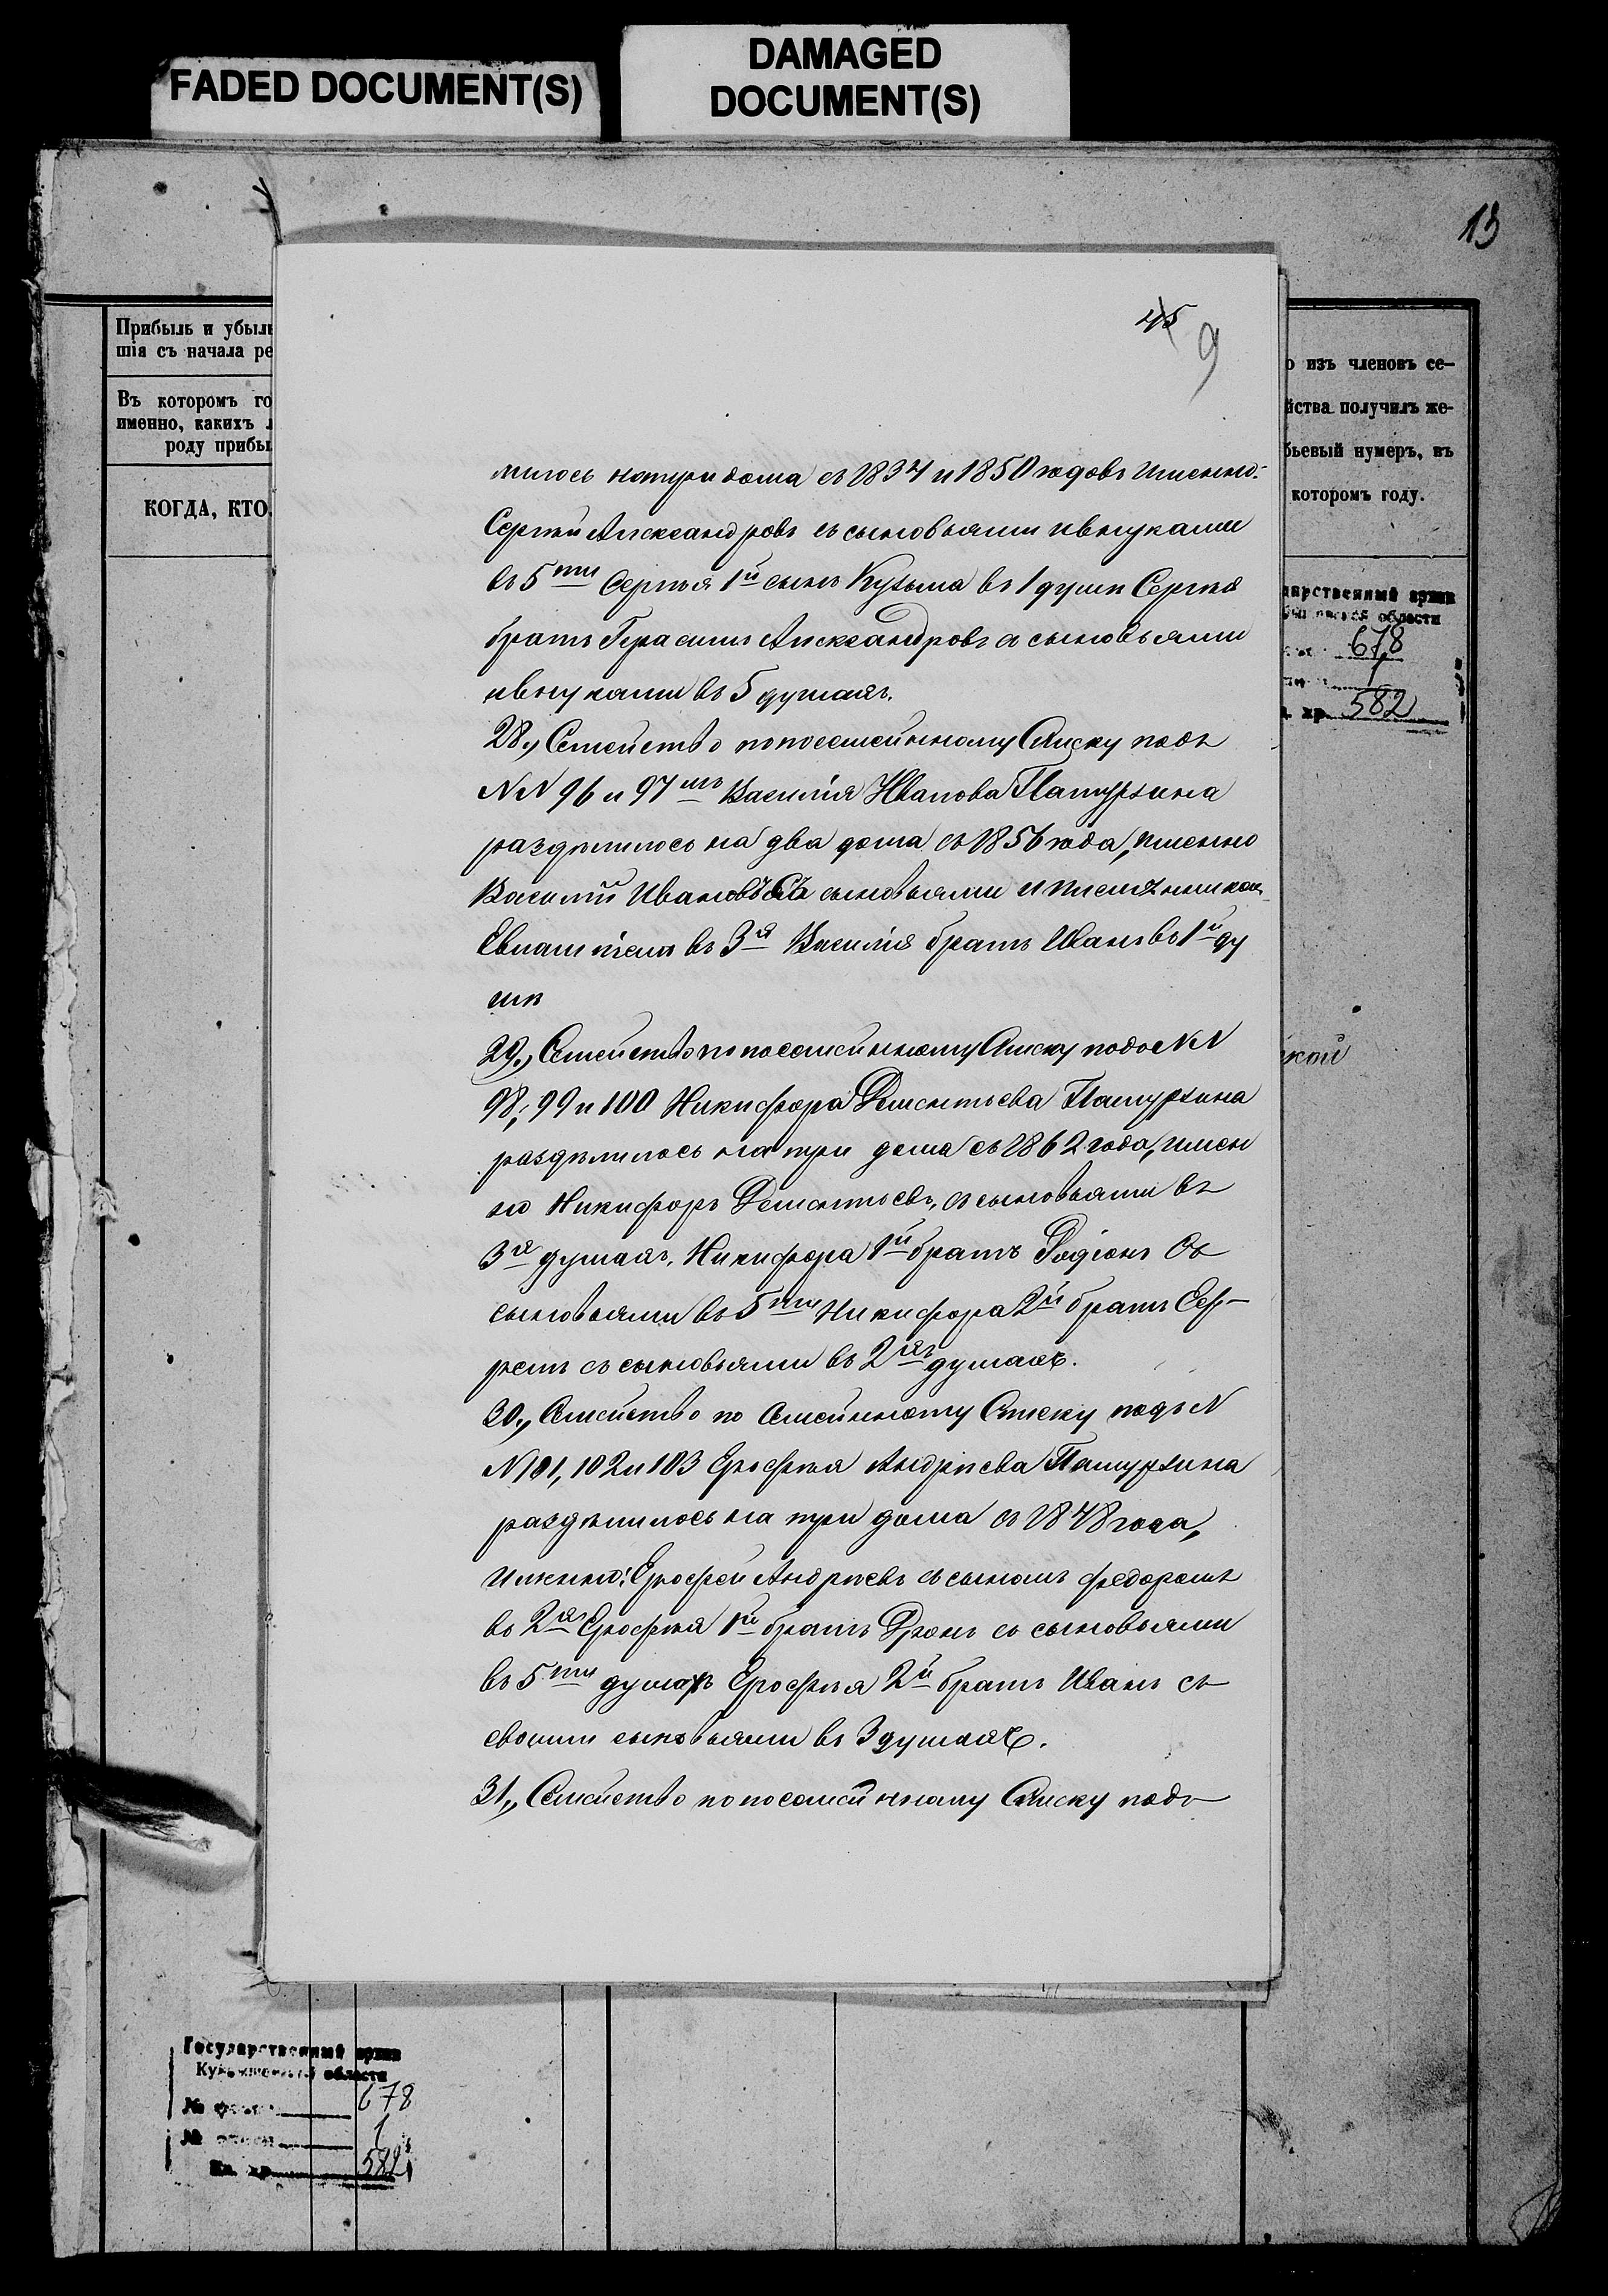 FADED DOCUMENT(S)
DAMAGED
DOCUMENT(S)
13
Прибыль и убыль
шія съ начала ре
Въ которомъ го
именно, какихъ л
роду прибы
КОГДА, КТО,
о изъ членовъ се-
йства получилъ же-
бьевый нумеръ, въ
которомъ году.
678
1
582
кой
45
9
лилось натри дома съ 1834 и 1850 годовъ именно:
Сергѣй Александровъ съ сыновьями ивнуками
въ 5ти Сергѣя 1й сынъ Кузьма въ 1 душѣ Сергѣя
братъ Герасимъ Александровъ съ сыновьями
ивнуками въ 5 душахъ.
28., Семейство попосемейнному Списку подъ
NN 96 и 97мъ Василія Иванова Пашурхина
раздѣлилось на два дома съ 1856 года, именно
Василій Ивановъ Съ сыновьями и племянником
въ 3я Василія братъ Иванъ въ 1й ду
шѣ
29., Семейство попосемейнному Списку подъ NN
98, 99 и 100 Никифора Дементьева Пашурхина
раздѣлилось на три дома съ 1862 года, имен
но Никифоръ Дементьевъ, съ сыновьями въ
3я душахъ, Никифора 1й братъ Родіонъ Съ
сыновьями въ 5ти Никифора 2й братъ Еф-
ремъ съ сыновьями въ 2хъ душахъ.
30., Семейство по Семейнному Списку подъ N
N 101, 102 и 103 Ерофѣя Андрѣева Пашурхина
раздѣлилось на три дома съ 1848 года,
именно: Ерофей Андрѣевъ съ сыномъ федоромъ
въ 2хъ Ерофѣя 1й братъ Дронъ съ сыновьями
въ 5ти душахъ Ерофѣя 2й братъ Иванъ съ
своими сыновьями въ 3 душахъ.
31., Семейство попосемейнному Списку подъ
Государственный архив
Куйбышевской области
№ фонда 678
№ описи 1
Ед. хр. 582